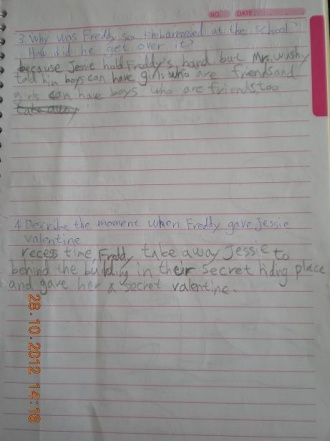 NO. DATE
3. Why was Freddy so embarrassed at the school?
How did he get over it?
because Jesse hold Freddy's hand but Mrs. Wishy
told him boys can have girls who are friends and
girls can have boys who are friends too
take away
4. Describe the moment when Freddy gave Jessie
valentine
recess time Freddy take away Jessie to
behind the building in their secret hiding place
and gave her a secret valentine.
28.10.2012 14:16